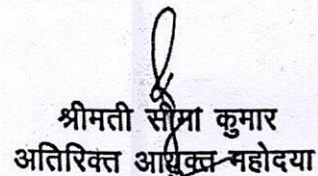 श्रीमती सीमा कुमार
अतिरिक्त आयुक्त महोदया